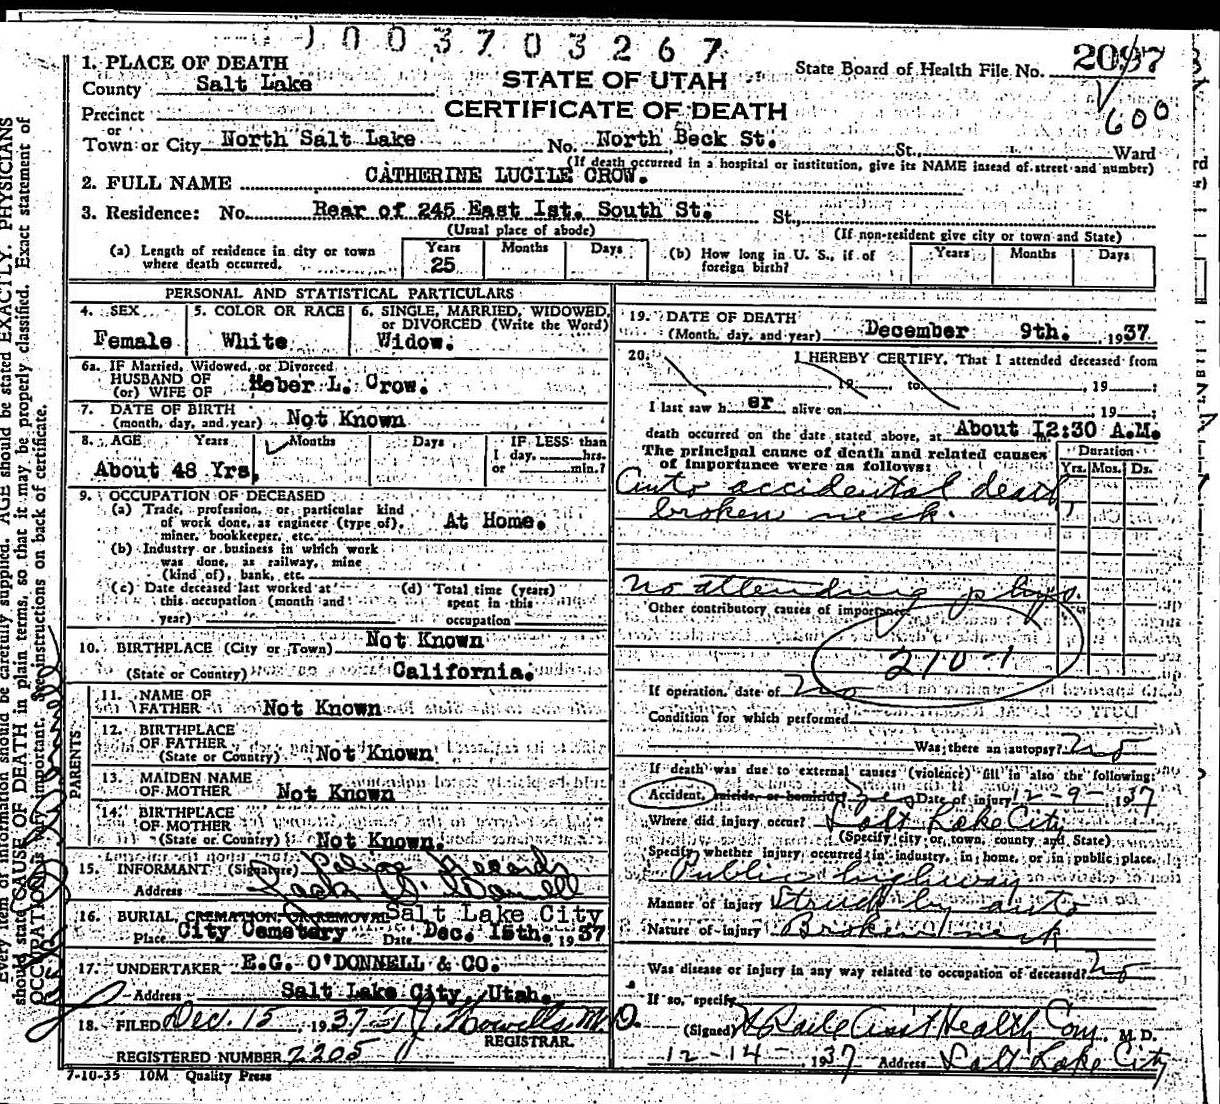 1003703267
1. PLACE OF DEATH
County Salt Lake
STATE OF UTAH
CERTIFICATE OF DEATH
State Board of Health File No. 2087
600
Precinct
or
Town or City North Salt Lake No. North Beck St. St., Ward
(If death occurred in a hospital or institution, give its NAME insead of street and number)
2. FULL NAME CATHERINE LUCILE CROW.
3. Residence: No. Rear of 245 East Ist. South St. St.,
(Usual place of abode) (If non-resident give city or town and State)
(a) Length of residence in city or town where death occurred. Years 25 Months Days
(b) How long in U. S., if of foreign birth? Years Months Days
PERSONAL AND STATISTICAL PARTICULARS
4. SEX Female
5. COLOR OR RACE White
6. SINGLE, MARRIED, WIDOWED, or DIVORCED (Write the Word) Widow.
6a. IF Married, Widowed, or Divorced
HUSBAND OF
(or) WIFE OF Heber L. Crow.
7. DATE OF BIRTH
(month, day, and year) Not Known
8. AGE Years Months Days IF LESS than
1 day, hrs.
or min.?
About 48 Yrs,
9. OCCUPATION OF DECEASED
(a) Trade, profession, or particular kind
of work done, as engineer (type of), At Home.
miner, bookkeeper, etc.
(b) Industry or business in which work
was done, as railway, mine
(kind of), bank, etc.
(c) Date deceased last worked at
this occupation (month and
year)
(d) Total time (years)
spent in this
occupation
10. BIRTHPLACE (City or Town) Not Known
(State or Country) California.
PARENTS
11. NAME OF
FATHER Not Known
12. BIRTHPLACE
OF FATHER
(State or Country) Not Known
13. MAIDEN NAME
OF MOTHER Not Known
14. BIRTHPLACE
OF MOTHER
(State or Country) Not Known.
15. INFORMANT (Signature) Police Records
Address
16. BURIAL, CREMATION OR REMOVAL Salt Lake City
Place City Cemetery Date Dec. 15th. 1937
17. UNDERTAKER E.G. O'DONNELL & CO.
Address Salt Lake City, Utah.
18. FILED Dec. 15, 1937
REGISTRAR.
REGISTERED NUMBER 2205
7-10-35 10M Quality Press
19. DATE OF DEATH
(Month, day, and year) December 9th. 1937
20. I HEREBY CERTIFY, That I attended deceased from
, 19 to , 19 ;
I last saw h er alive on 19 ;
death occurred on the date stated above, at About I2:30 A.M. m.
The principal cause of death and related causes
of importance were as follows:
Duration
Yrs. Mos. Ds.
Auto accidental death,
broken neck.
No attending phys.
Other contributory causes of importance
210-1
If operation, date of No
Condition for which performed
Was there an autopsy? No
If death was due to external causes (violence) fill in also the following:
Accident, suicide, or homicide? yes Date of injury 12-9- 1937
Where did injury occur? Salt Lake City
(Specify city or town, county and State)
Specify whether injury occurred in industry, in home, or in public place.
Public highway
Manner of injury Struck by auto
Nature of injury Broken neck
Was disease or injury in any way related to occupation of deceased? No
If so, specify
(Signed) Asst Health Com M. D.
12-14- 1937 Address Salt Lake City
Every item of information should be carefully supplied. AGE should be stated EXACTLY. PHYSICIANS
should state CAUSE OF DEATH in plain terms, so that it may be properly classified. Exact statement of
OCCUPATION is very important. See instructions on back of certificate.